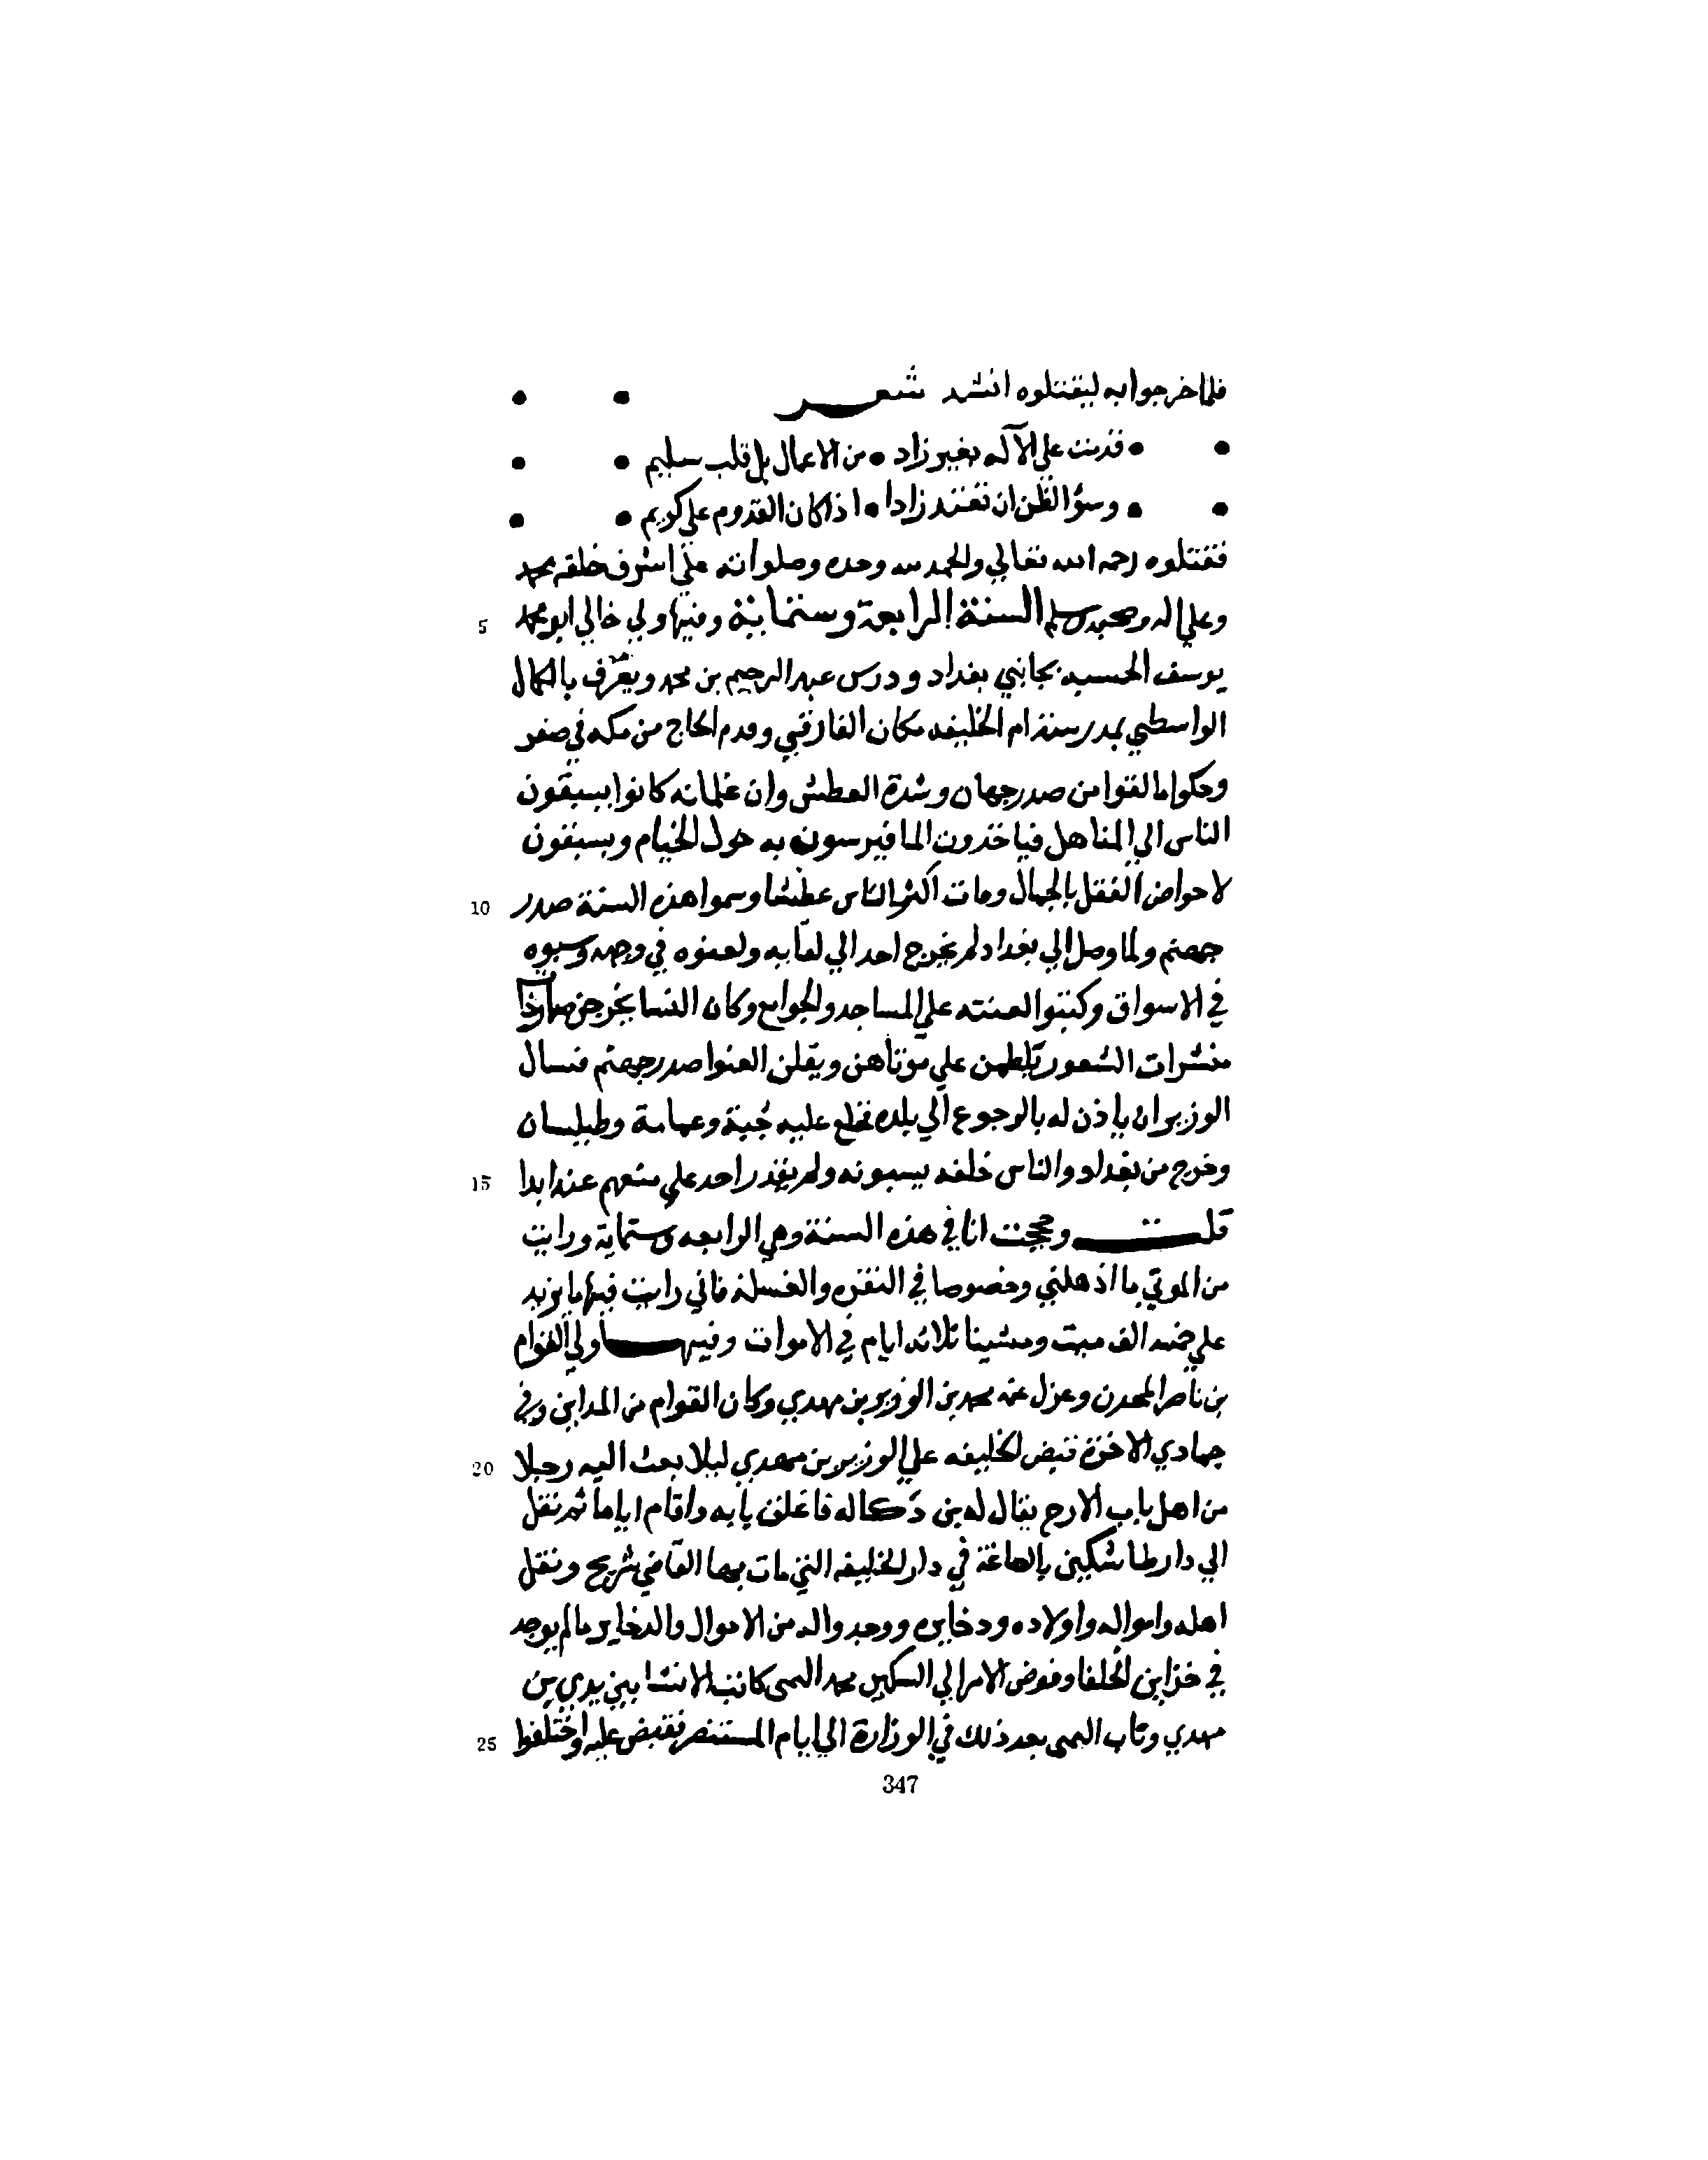 فلما خرجوا به ليقتلوه انشد شعر
قدمت علي الآله بغير زاد • من الاعمال بل قلب سليم
وسؤ الظن ان تعتد زادا • اذا كان القدوم علي كريم
فقتلوه رحمه الله تعالي والحمد لله وحده وصلواته علي اشرف خلقه محمد
5 وعلي اله وصحبه وسلم السنة الرابعة وستماية وفيها ولي خالي ابو محمد
يوسف الحسبه بجانبي بغداد ودرس عبد الرحيم بن محمد ويعرف بالكمال
الواسطي بمدرسة ام الخليفه مكان الفارقي وقدم الحاج من مكه في صفر
وحكوا ما لقوا من صدرجهان وشدة العطش وان غلمانه كانوا يسبقون
الناس الي المناهل فياخذون الما فيرسون به حول الخيام ويسبقون
10 لاحواض البقل بالجمال ومات اكثر الناس عطشا وسموا هذه السنة صدر
جهنم ولما وصل الي بغداد لم يخرج احد الي لقايه ولعنوه في وجهه وسبوه
في الاسواق وكتبوا لعنته علي المساجد والجوامع وكان النسا يخرجن صارخا
منشرات الشعور يلطمن علي موتاهن ويقلن العنوا صدرجهنم فسال
الوزير ان ياذن له بالرجوع الي بلده فخلع عليه جبة وعمامة وطيلسان
15 وخرج من بغداد والناس خلفه يسبونه ولم يقدر احد علي منعهم عنه ابدا
قلت وحججت انا في هذه السنة وهي الرابعه وستماية ورايت
من الموتي ما اذهلني وخصوصا في النقره والعسلة فاني رايت فيها ما يزيد
علي خمسه الف ميت ومشينا ثلاثه ايام في الاموات وفيها ولي القوام
بن ناصر المخزن وعزل عنه محمد بن الوزير بن مهدي وكان القوام من المداين وفي
20 جمادي الاخرة قبض الخليفه علي الوزير بن مهدي ليلا بعث اليه رجلا
من اهل باب الازج يقال له بن دكاله فاغلق بابه واقام اياما ثم نقل
الي دار طاشتكين بالصاغة في دار الخليفه التي مات بها القاضي شريح ونقل
اهله وامواله واولاده وذخايره ووجد واله من الاموال والدخاير مالم يوجد
في خزاين الخلفا وفوض الامر الي المكين محمد القمي كاتب الانشا بين يدي بن
25 مهدي وناب القمي بعد ذلك في الوزارة الي ايام المستنصر فقبض عليه واختلفوا
347